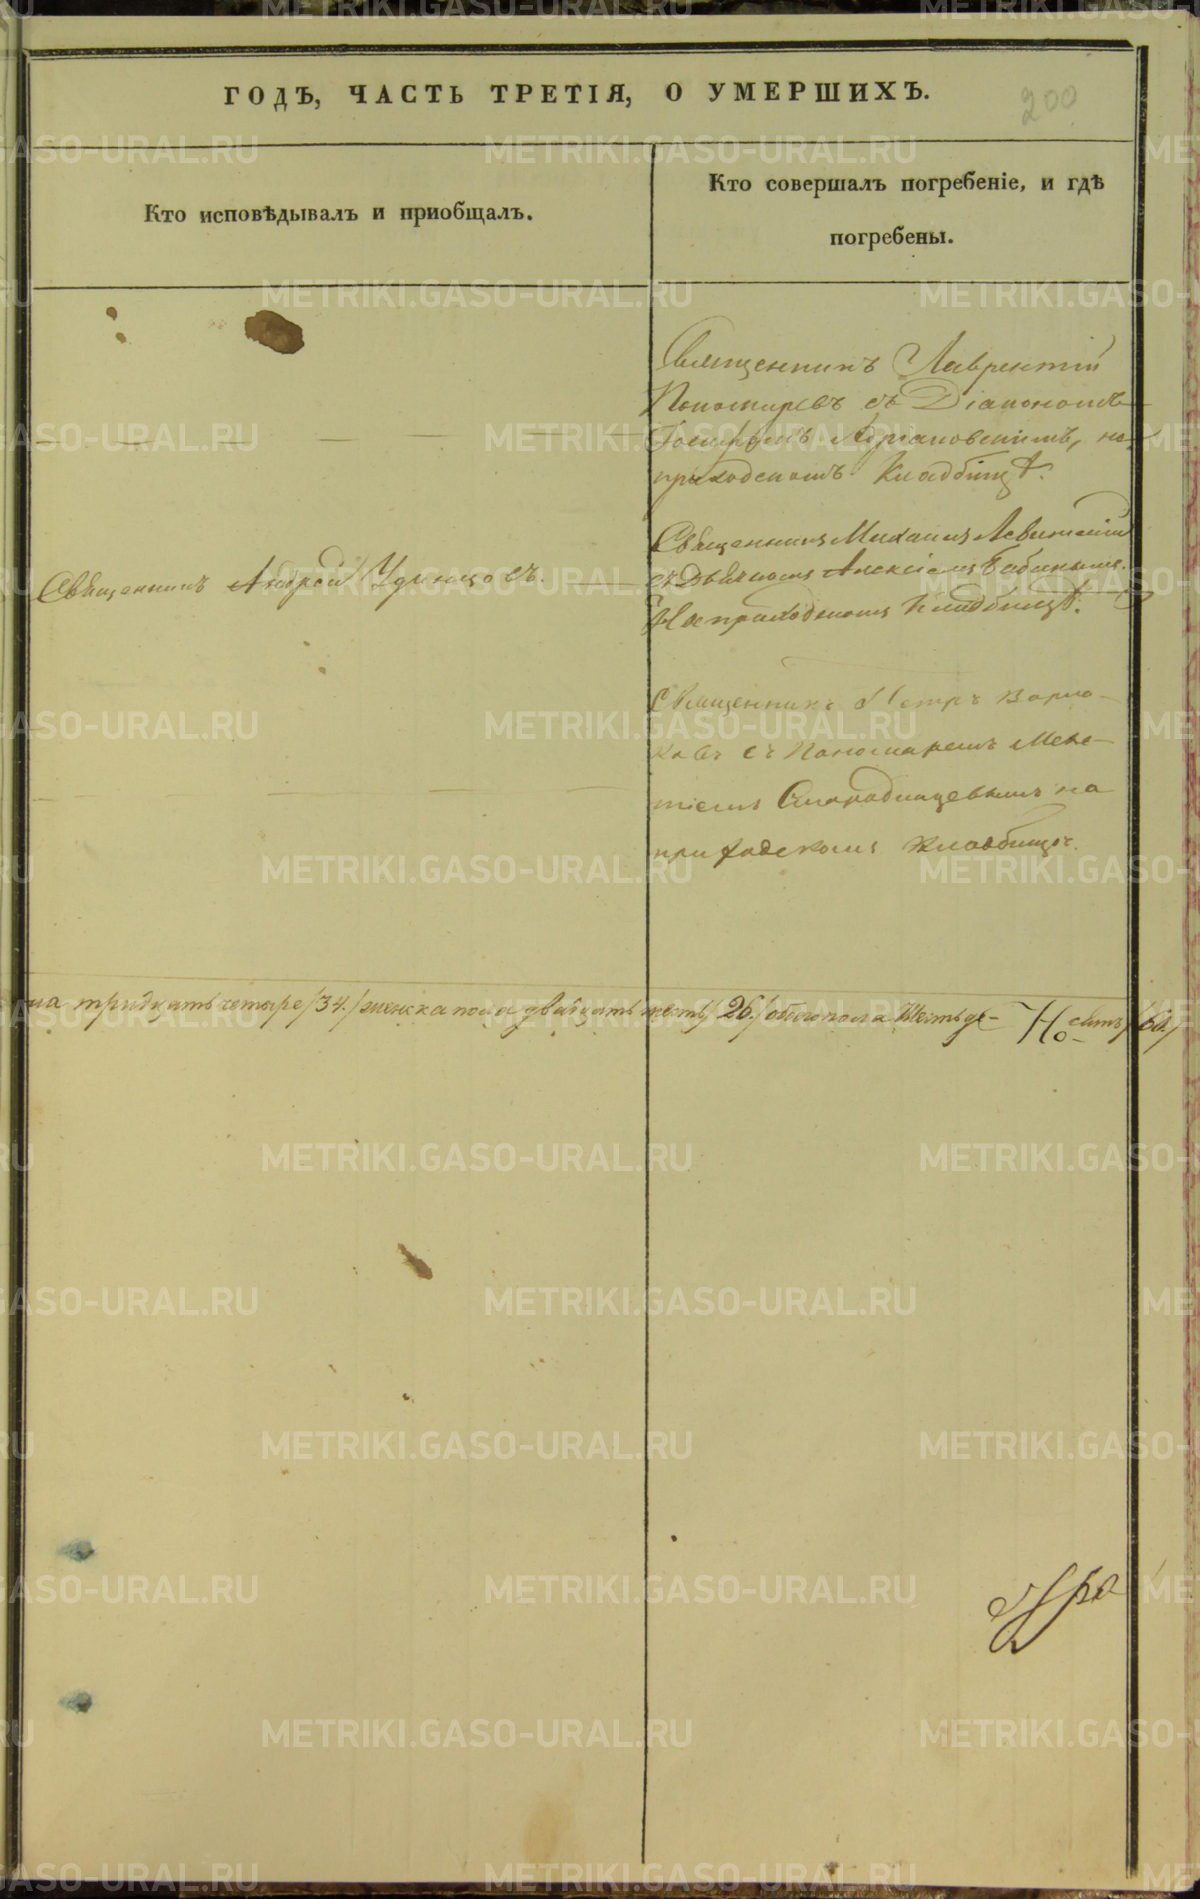 ГОДЪ, ЧАСТЬ ТРЕТІЯ, О УМЕРШИХЪ.
200
Кто исповѣдывалъ и приобщалъ.
Кто совершалъ погребеніе, и гдѣ
погребены.
Священникъ Лаврентій
Пономаревъ съ Діакономъ
на
приходскомъ Кладбищѣ.
Священникъ Андрей Удинцовъ.
Священникъ Михаилъ Левитскій
съ Дьячкомъ Алексіемъ Бабинымъ.
На приходскомъ Кладбищѣ.
Священникъ Петръ
съ Пономаремъ
Смородинцевымъ на
приходскомъ Кладбищѣ.
ла тридцать четыре /34./ женска пола двадцать шесть /26./ обоего пола Шестьде-
сятъ /60./
METRIKI.GASO-URAL.RU